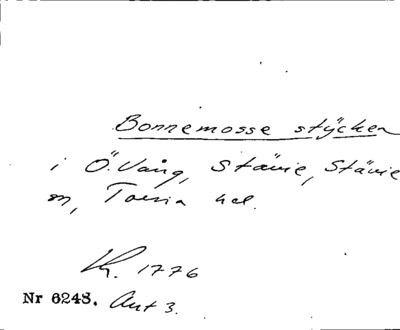 Bonnemosse stÿcken
i Ö. Vång, Stävie, Stävie
sn, Torna hd.
Lk. 1776
Nr 6248. Akt 3.